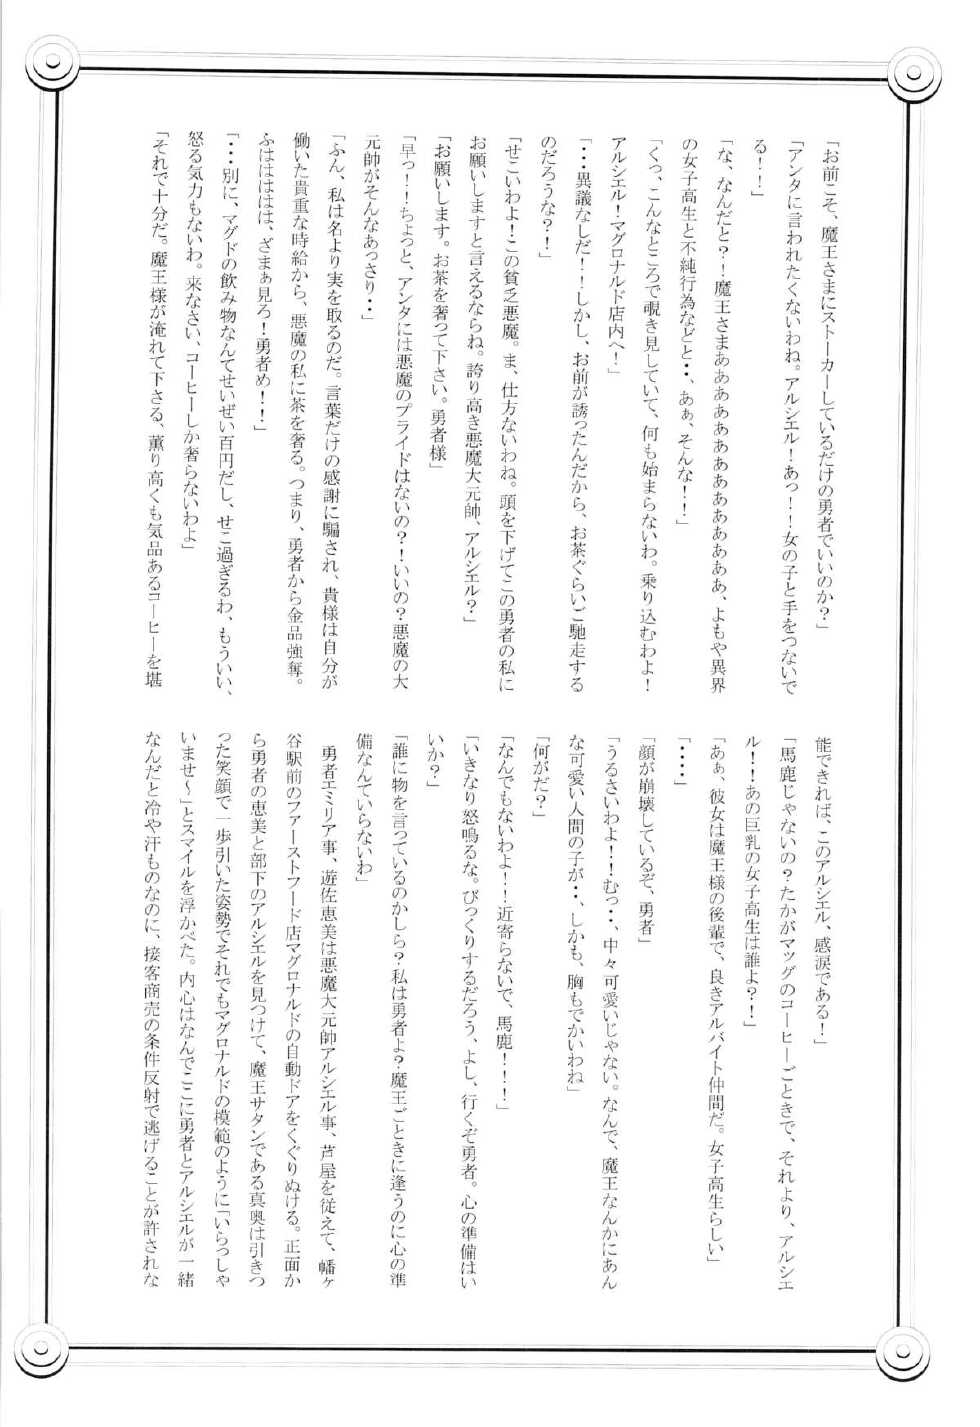 「お前こそ、魔王さまにストーカーしているだけの勇者でいいのか？」
「アンタに言われたくないわね。アルシエル！あっ！！女の子と手をつないで
る！！」
「な、なんだと？！魔王さまああああああああああああああ、よもや異界
の女子高生と不純行為などと・・、あぁ、そんな！！」
「くっ、こんなところで覗き見していて、何も始まらないわ。乗り込むわよ！
アルシエル！マグロナルド店内へ！」
「・・・異議なしだ！！しかし、お前が誘ったんだから、お茶ぐらいご馳走する
のだろうな？！」
「せこいわよ！この貧乏悪魔。ま、仕方ないわね。頭を下げてこの勇者の私に
お願いしますと言えるならね。誇り高き悪魔大元帥、アルシエル？」
「お願いします。お茶を奢って下さい。勇者様」
「早っ！！ちょっと、アンタには悪魔のプライドはないの？！いいの？悪魔の大
元帥がそんなあっさり・・」
「ふん、私は名より実を取るのだ。言葉だけの感謝に騙され、貴様は自分が
働いた貴重な時給から、悪魔の私に茶を奢る。つまり、勇者から金品強奪。
ふはははははは、ざまぁ見ろ！勇者め！！」
「・・・別に、マグドの飲み物なんてせいぜい百円だし、せこ過ぎるわ、もういい、
怒る気力もないわ。来なさい、コーヒーしか奢らないわよ」
「それで十分だ。魔王様が淹れて下さる、薫り高くも気品あるコーヒーを堪
能できれば、このアルシエル、感涙である！」
「馬鹿じゃないの？たかがマッグのコーヒーごときで、それより、アルシエ
ル！！あの巨乳の女子高生は誰よ？！」
「あぁ、彼女は魔王様の後輩で、良きアルバイト仲間だ。女子高生らしい」
「・・・・」
「顔が崩壊しているぞ、勇者」
「うるさいわよ！！むっ・・、中々可愛いじゃない。なんで、魔王なんかにあん
な可愛い人間の子が・・、しかも、胸もでかいわね」
「何がだ？」
「なんでもないわよ！！近寄らないで、馬鹿！！！」
「いきなり怒鳴るな。びっくりするだろう、よし、行くぞ勇者。心の準備はい
いか？」
「誰に物を言っているのかしら？私は勇者よ？魔王ごときに逢うのに心の準
備なんていらないわ」
　勇者エミリア事、遊佐恵美は悪魔大元帥アルシエル事、芦屋を従えて、幡ヶ
谷駅前のファーストフード店マグロナルドの自動ドアをくぐりぬける。正面か
ら勇者の恵美と部下のアルシエルを見つけて、魔王サタンである真奥は引きつ
った笑顔で一歩引いた姿勢でそれでもマグロナルドの模範のように「いらっしゃ
いませ～」とスマイルを浮かべた。内心はなんでここに勇者とアルシエルが一緒
なんだと冷や汗ものなのに、接客商売の条件反射で逃げることが許されな